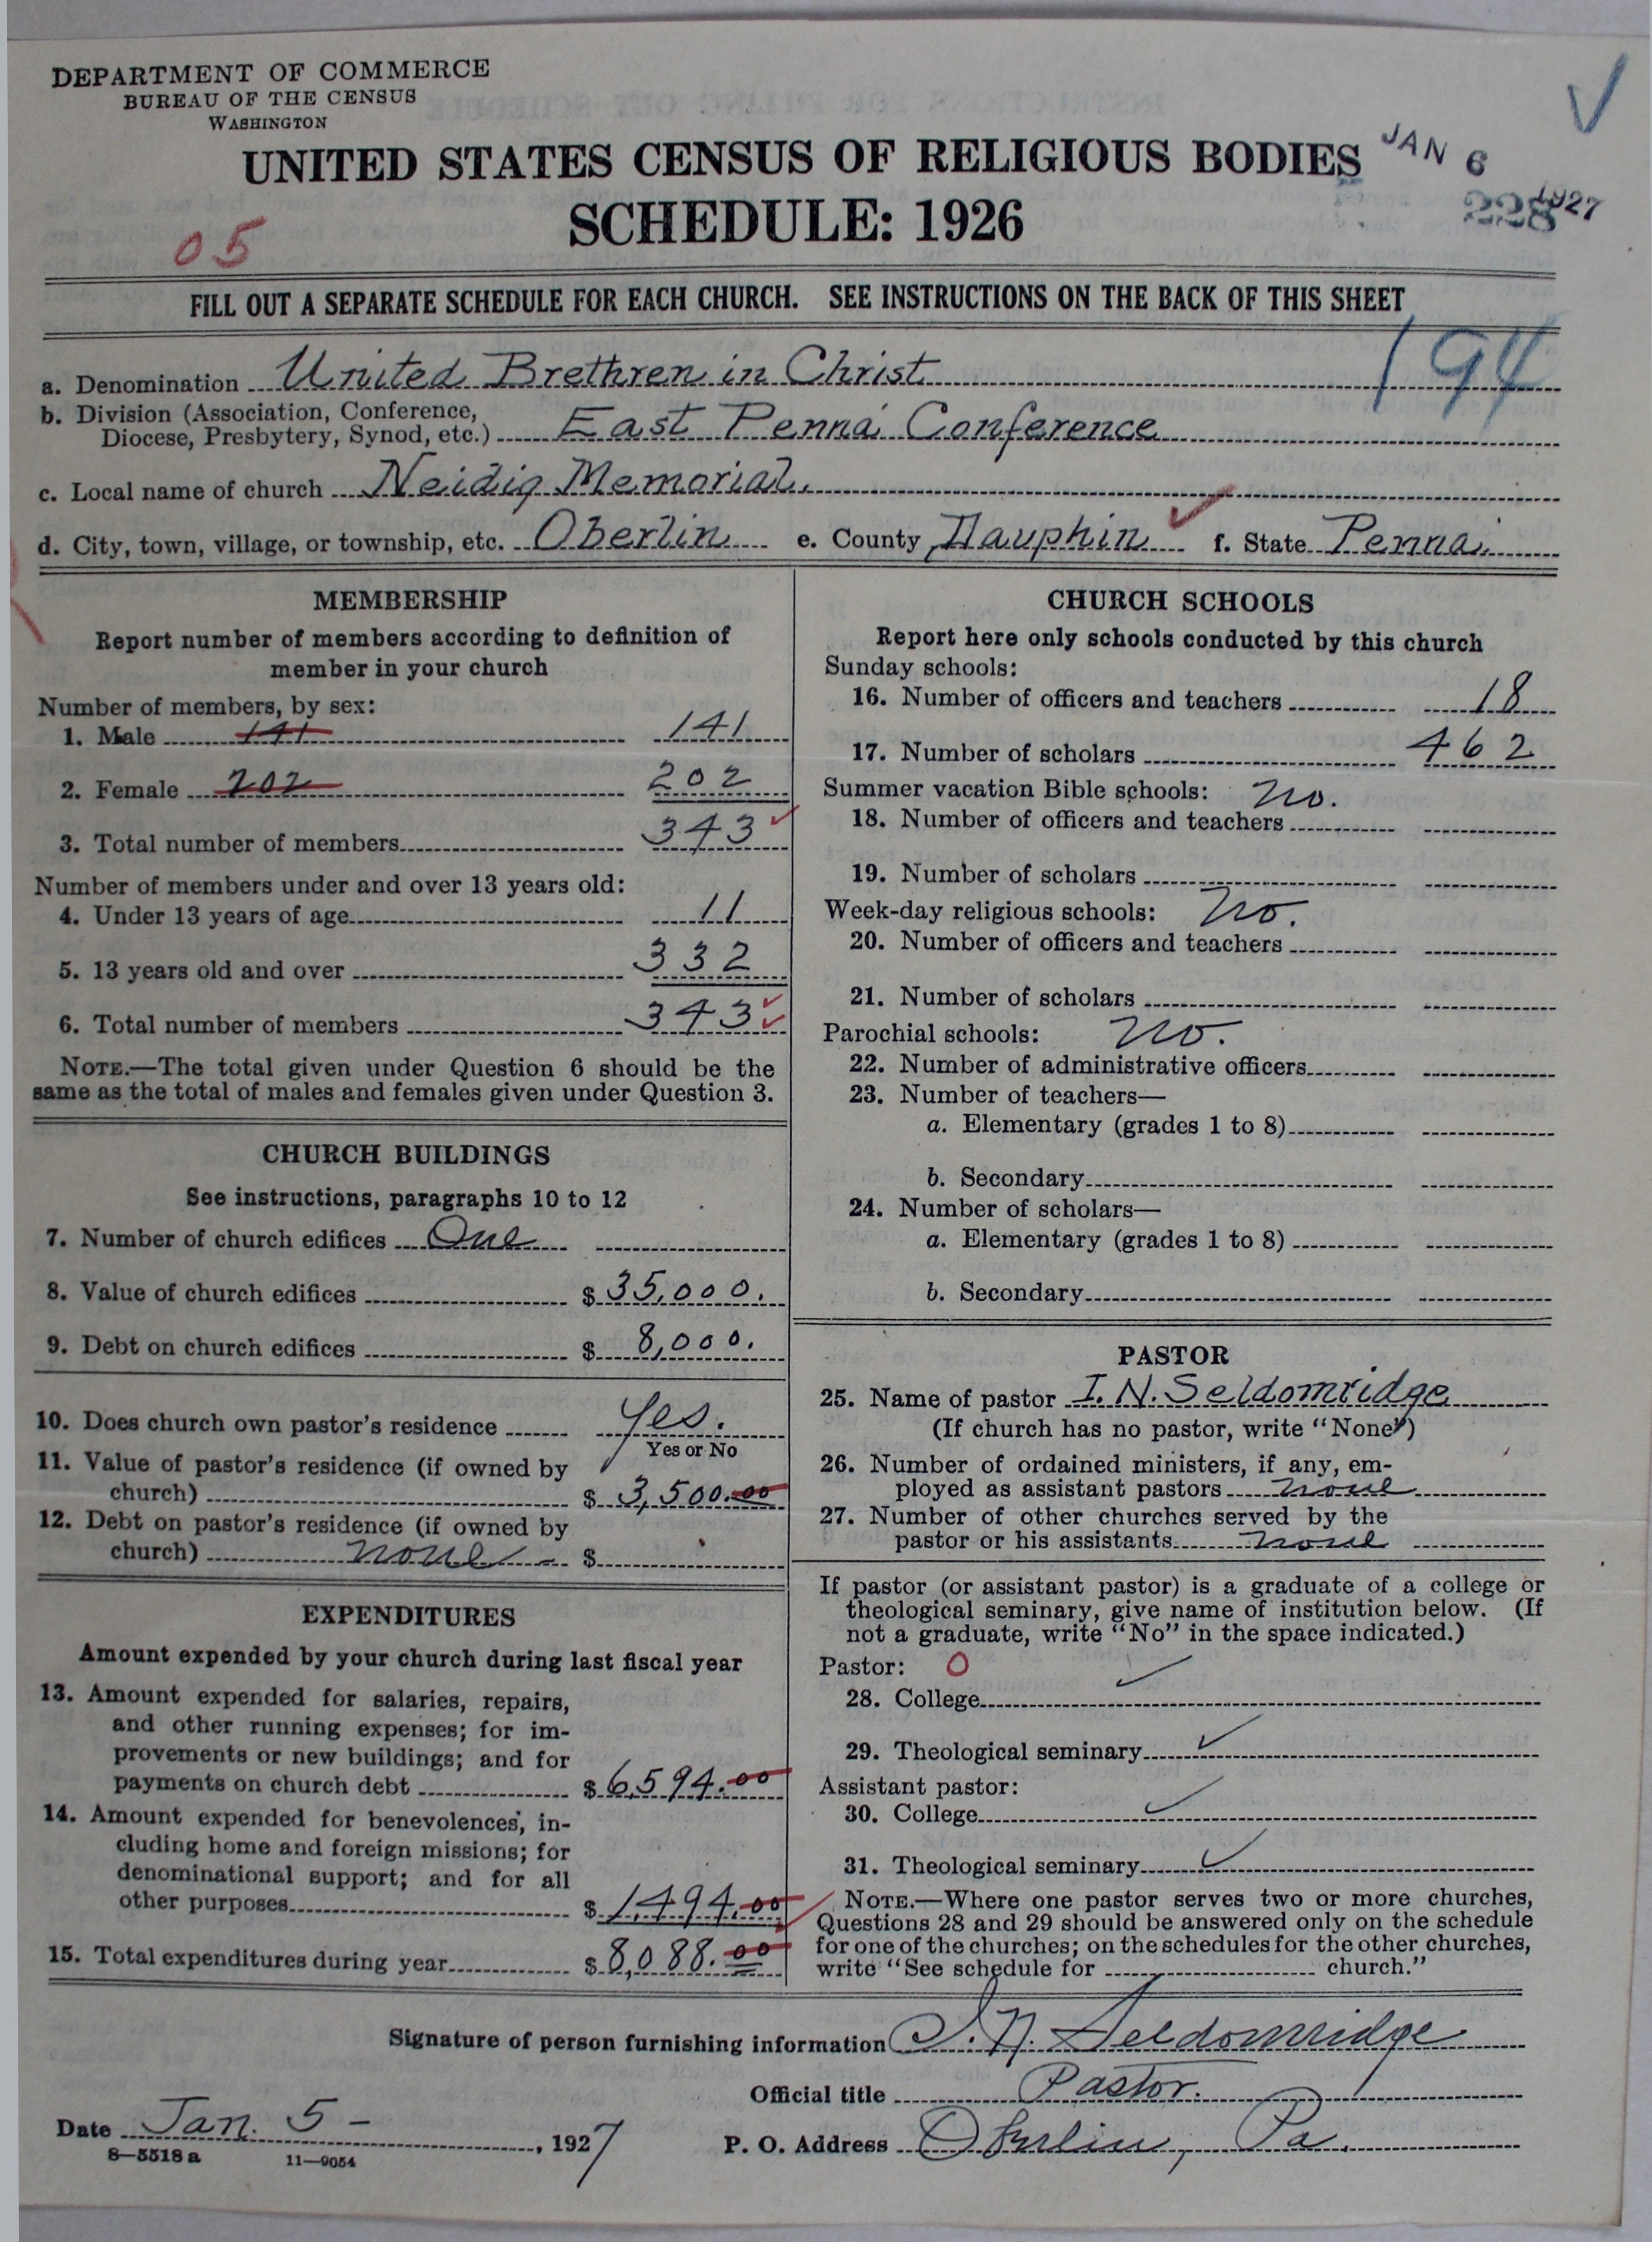 DEPARTMENT OF COMMERCE
BUREAU OF THE CENSUS
WASHINGTON
UNITED STATES CENSUS OF RELIGIOUS BODIES
JAN 6
1927
228
SCHEDULE: 1926
05
FILL OUT A SEPARATE SCHEDULE FOR EACH CHURCH. SEE INSTRUCTIONS ON THE BACK OF THIS SHEET
194
a. Denomination United Brethren in Christ
b. Division (Association, Conference,
Diocese, Presbytery, Synod, etc.) East Penna Conference
c. Local name of church Neidig Memorial.
d. City, town, village, or township, etc. Oberlin e. County Dauphin f. State Penna.
MEMBERSHIP
Report number of members according to definition of
member in your church
Number of members, by sex:
1. Male 141 141
2. Female 202 202
3. Total number of members 343
Number of members under and over 13 years old:
4. Under 13 years of age 11
5. 13 years old and over 332
6. Total number of members 343
NOTE.—The total given under Question 6 should be the
same as the total of males and females given under Question 3.
CHURCH BUILDINGS
See instructions, paragraphs 10 to 12
7. Number of church edifices One
8. Value of church edifices $ 35,000.
9. Debt on church edifices $ 8,000.
10. Does church own pastor's residence Yes.
Yes or No
11. Value of pastor's residence (if owned by
church) $ 3,500.00
12. Debt on pastor's residence (if owned by
church) none - $
EXPENDITURES
Amount expended by your church during last fiscal year
13. Amount expended for salaries, repairs,
and other running expenses; for im-
provements or new buildings; and for
payments on church debt $ 6,594.00
14. Amount expended for benevolences, in-
cluding home and foreign missions; for
denominational support; and for all
other purposes $ 1,494.00
15. Total expenditures during year $ 8,088.00
CHURCH SCHOOLS
Report here only schools conducted by this church
Sunday schools:
16. Number of officers and teachers 18
17. Number of scholars 462
Summer vacation Bible schools: no.
18. Number of officers and teachers
19. Number of scholars
Week-day religious schools: no.
20. Number of officers and teachers
21. Number of scholars
Parochial schools: no.
22. Number of administrative officers
23. Number of teachers—
a. Elementary (grades 1 to 8)
b. Secondary
24. Number of scholars—
a. Elementary (grades 1 to 8)
b. Secondary
PASTOR
25. Name of pastor I. N. Seldomridge
(If church has no pastor, write "None")
26. Number of ordained ministers, if any, em-
ployed as assistant pastors none
27. Number of other churches served by the
pastor or his assistants none
If pastor (or assistant pastor) is a graduate of a college or
theological seminary, give name of institution below. (If
not a graduate, write "No" in the space indicated.)
Pastor: 0
28. College ✓
29. Theological seminary ✓
Assistant pastor:
30. College ✓
31. Theological seminary ✓
NOTE.—Where one pastor serves two or more churches,
Questions 28 and 29 should be answered only on the schedule
for one of the churches; on the schedules for the other churches,
write "See schedule for church."
Signature of person furnishing information I. N. Seldomridge
Official title Pastor.
Date Jan. 5 - , 1927
P. O. Address Oberlin, Pa.
8—5518 a 11—9054